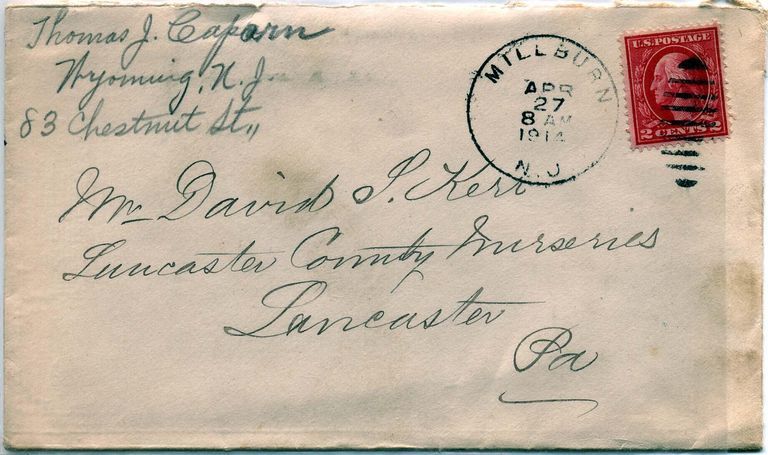 Thomas J. Caparn
Wyoming, N. J.
83 Chestnut St.,,
MILLBURN
APR
27
8 AM
1914
N.J.
U.S. POSTAGE
2 CENTS 2
Mr David S. Kerr
Lancaster County Nurseries
Lancaster
Pa